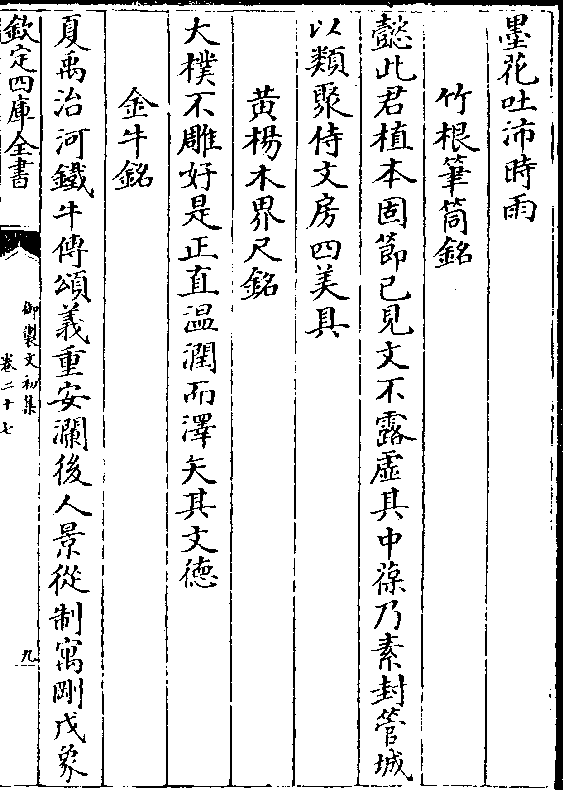 墨花吐沛時雨
竹根筆筒銘
懿此君植本固節已見文不露虛其中葆乃素封管城
以類聚侍文房四美具
黄楊木界尺銘
大樸不雕好是正直温潤而澤矢其文德
金牛銘
夏禹治河鐵牛傳頌義重安瀾後人景從制寓剛戊象
欽定四庫全書
御製文初集
卷二十七
九